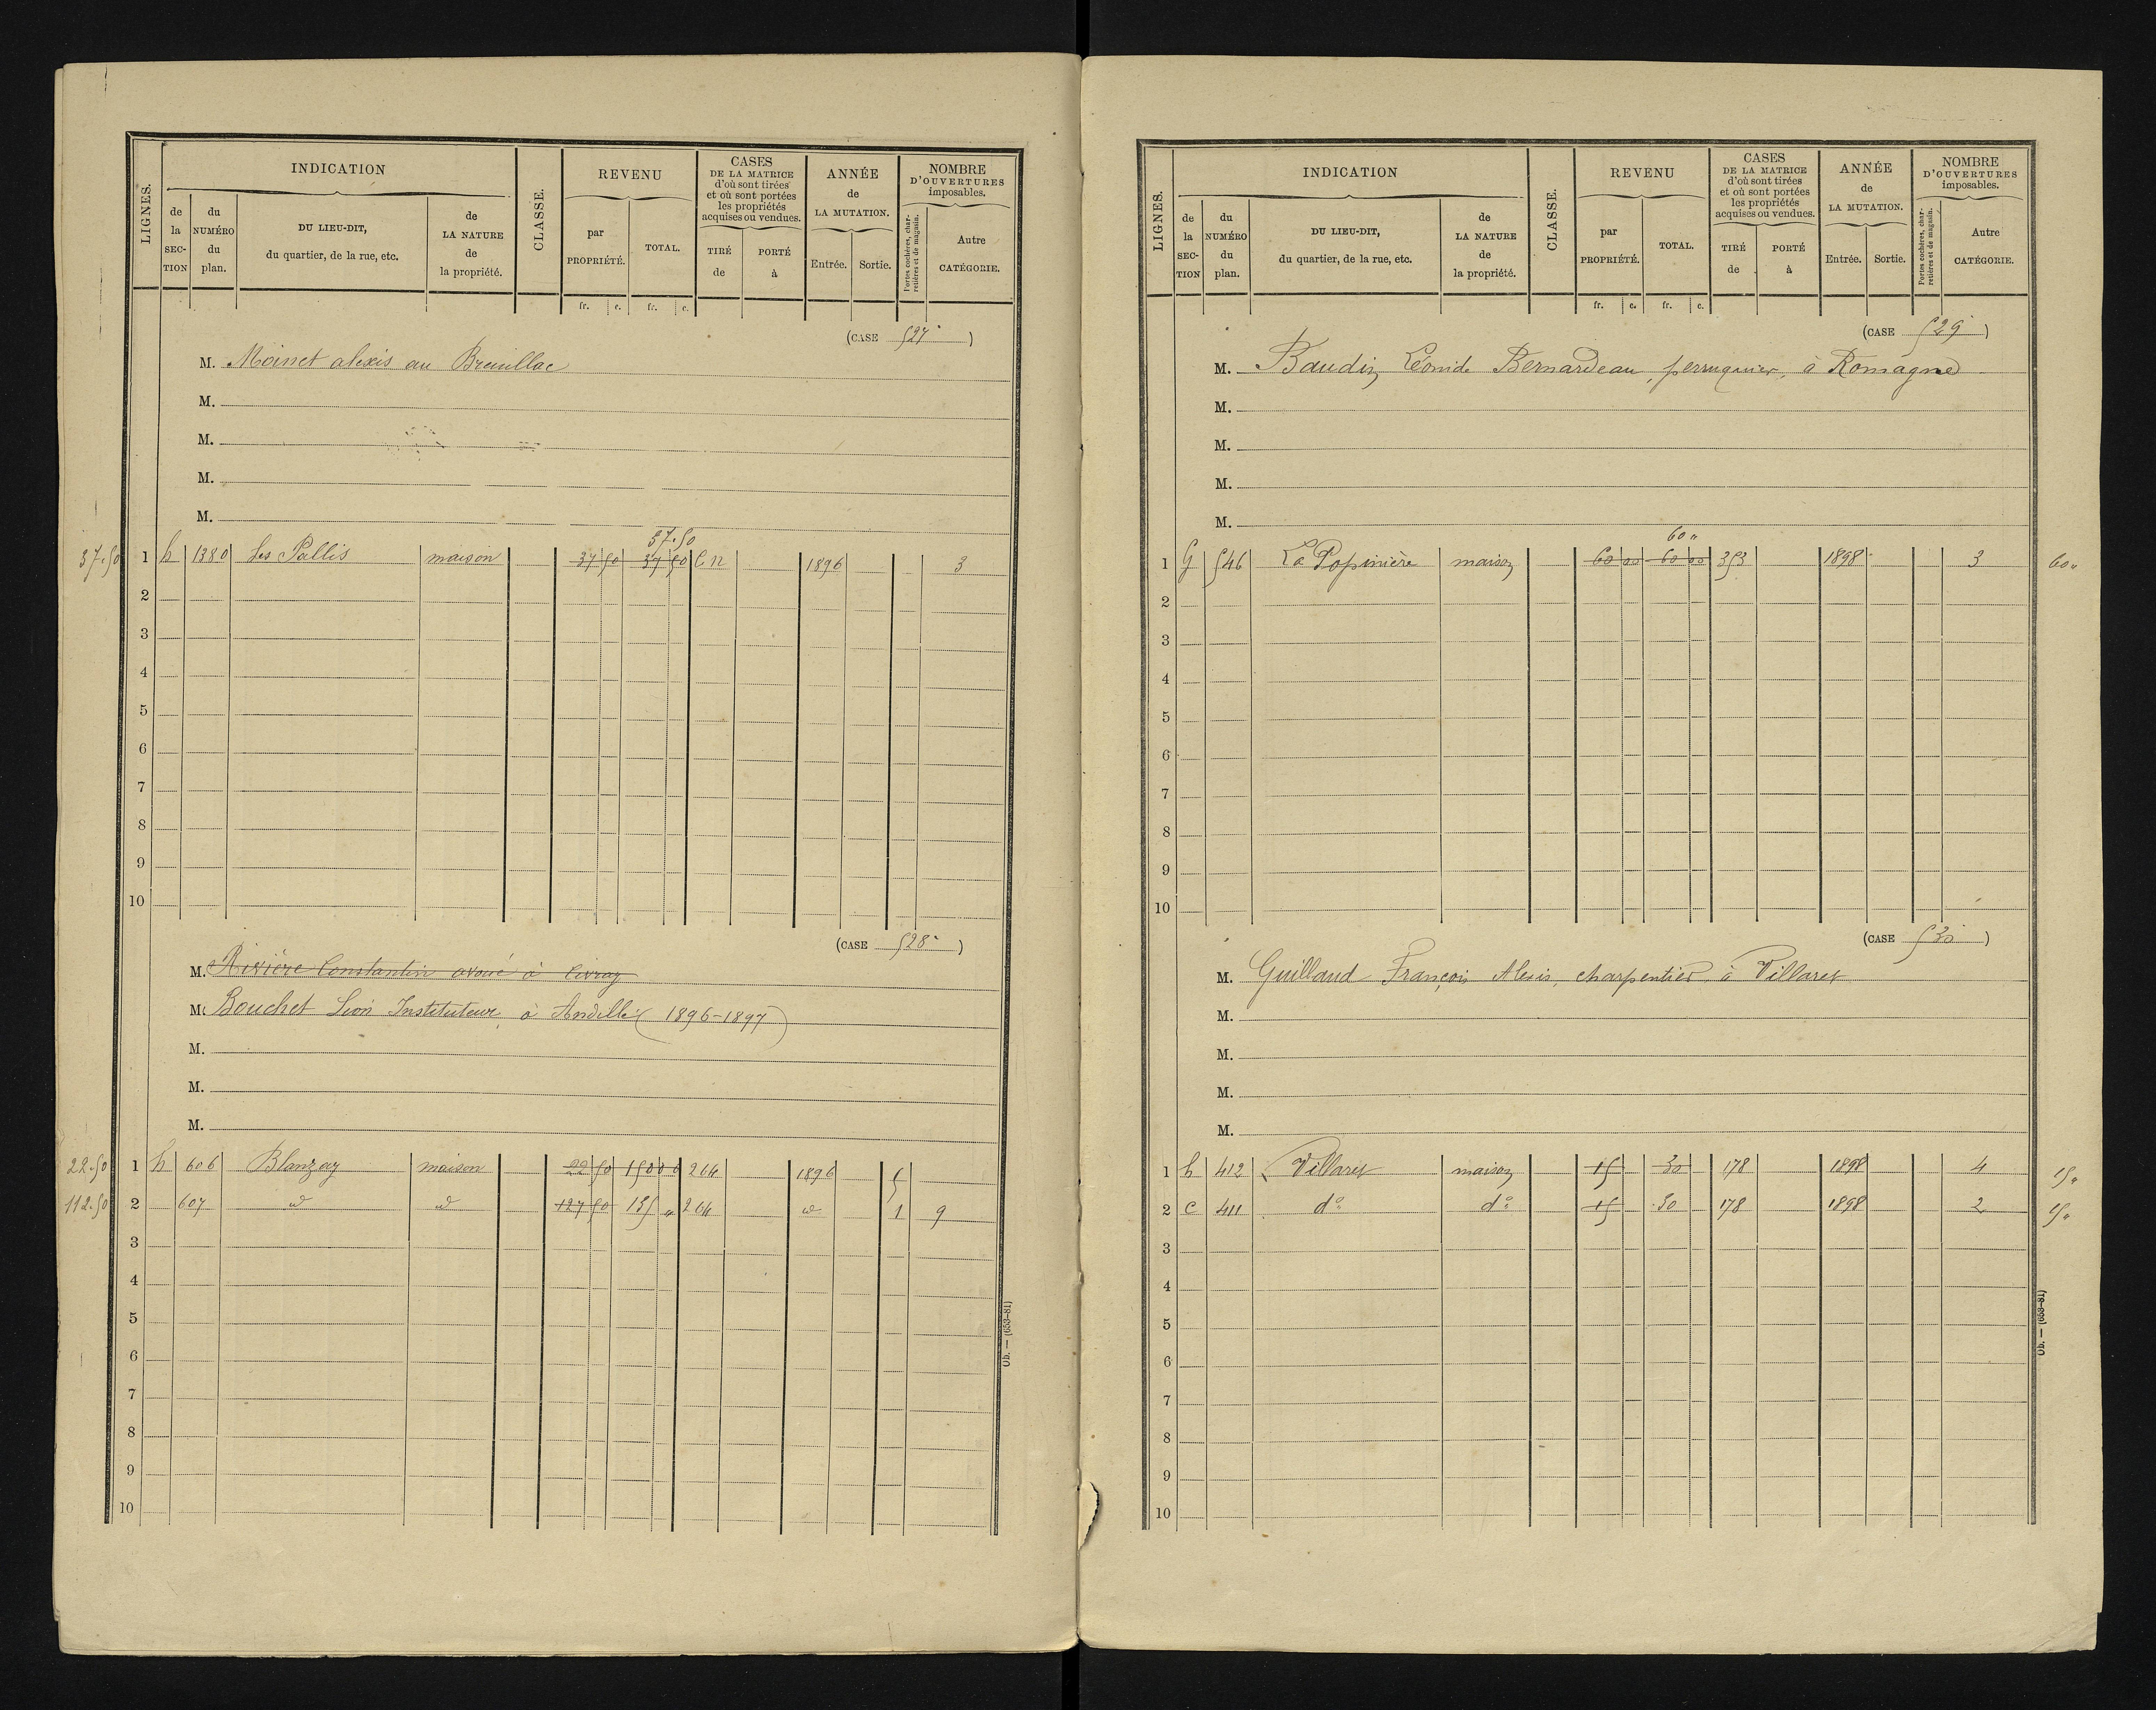 LIGNES. INDICATION CLASSE. REVENU CASES DE LA MATRICE d'où sont tirées et où sont portées les propriétés acquises ou vendues. ANNÉE de LA MUTATION. NOMBRE D'OUVERTURES imposables.
de la SECTION du NUMÉRO du plan. DU LIEU-DIT, du quartier, de la rue, etc. de LA NATURE de la propriété. par PROPRIÉTÉ. TOTAL. TIRÉ de PORTÉ à Entrée. Sortie. Portes cochères, charretières et de magasin. Autre CATÉGORIE.
fr. c. fr. c.
(CASE 527)
M. Moinet alexis au Breuillac
M.
M.
M.
M.
37.50
37.50 1 h 1380 Les Pallis maison 37 50 37 50 C n 1896 3
2
3
4
5
6
7
8
9
10
(CASE 528)
M. Rivière Constantin avoué à Civray
M. Bouchet Léon Instituteur à Andillé (1896-1897)
M.
M.
M.
22.50 1 h 606 Blanzay maison 22 50 150 00 264 1896
112.50 2 607 d d 127 50 135 " 264 d 1 9
3
4
5
6
7
8
9
10
Ob. — (653-81)
LIGNES. INDICATION CLASSE. REVENU CASES DE LA MATRICE d'où sont tirées et où sont portées les propriétés acquises ou vendues. ANNÉE de LA MUTATION. NOMBRE D'OUVERTURES imposables.
de la SECTION du NUMÉRO du plan. DU LIEU-DIT, du quartier, de la rue, etc. de LA NATURE de la propriété. par PROPRIÉTÉ. TOTAL. TIRÉ de PORTÉ à Entrée. Sortie. Portes cochères, charretières et de magasin. Autre CATÉGORIE.
fr. c. fr. c.
(CASE 529)
M. Baudin Léonide Bernardeau, perruquier, à Romagne
M.
M.
M.
M.
60 "
1 G 546 La Popinière maison 60 00 60 00 353 1898 3 60 "
2
3
4
5
6
7
8
9
10
(CASE 530)
M. Guillaud François Alexis, charpentier, à Villaret
M.
M.
M.
M.
1 h 412 Villaret maison 15 30 178 1898 4 15 "
2 c 411 d° d° 15 30 178 1898 2 15 "
3
4
5
6
7
8
9
10
Ob. — (653-81)